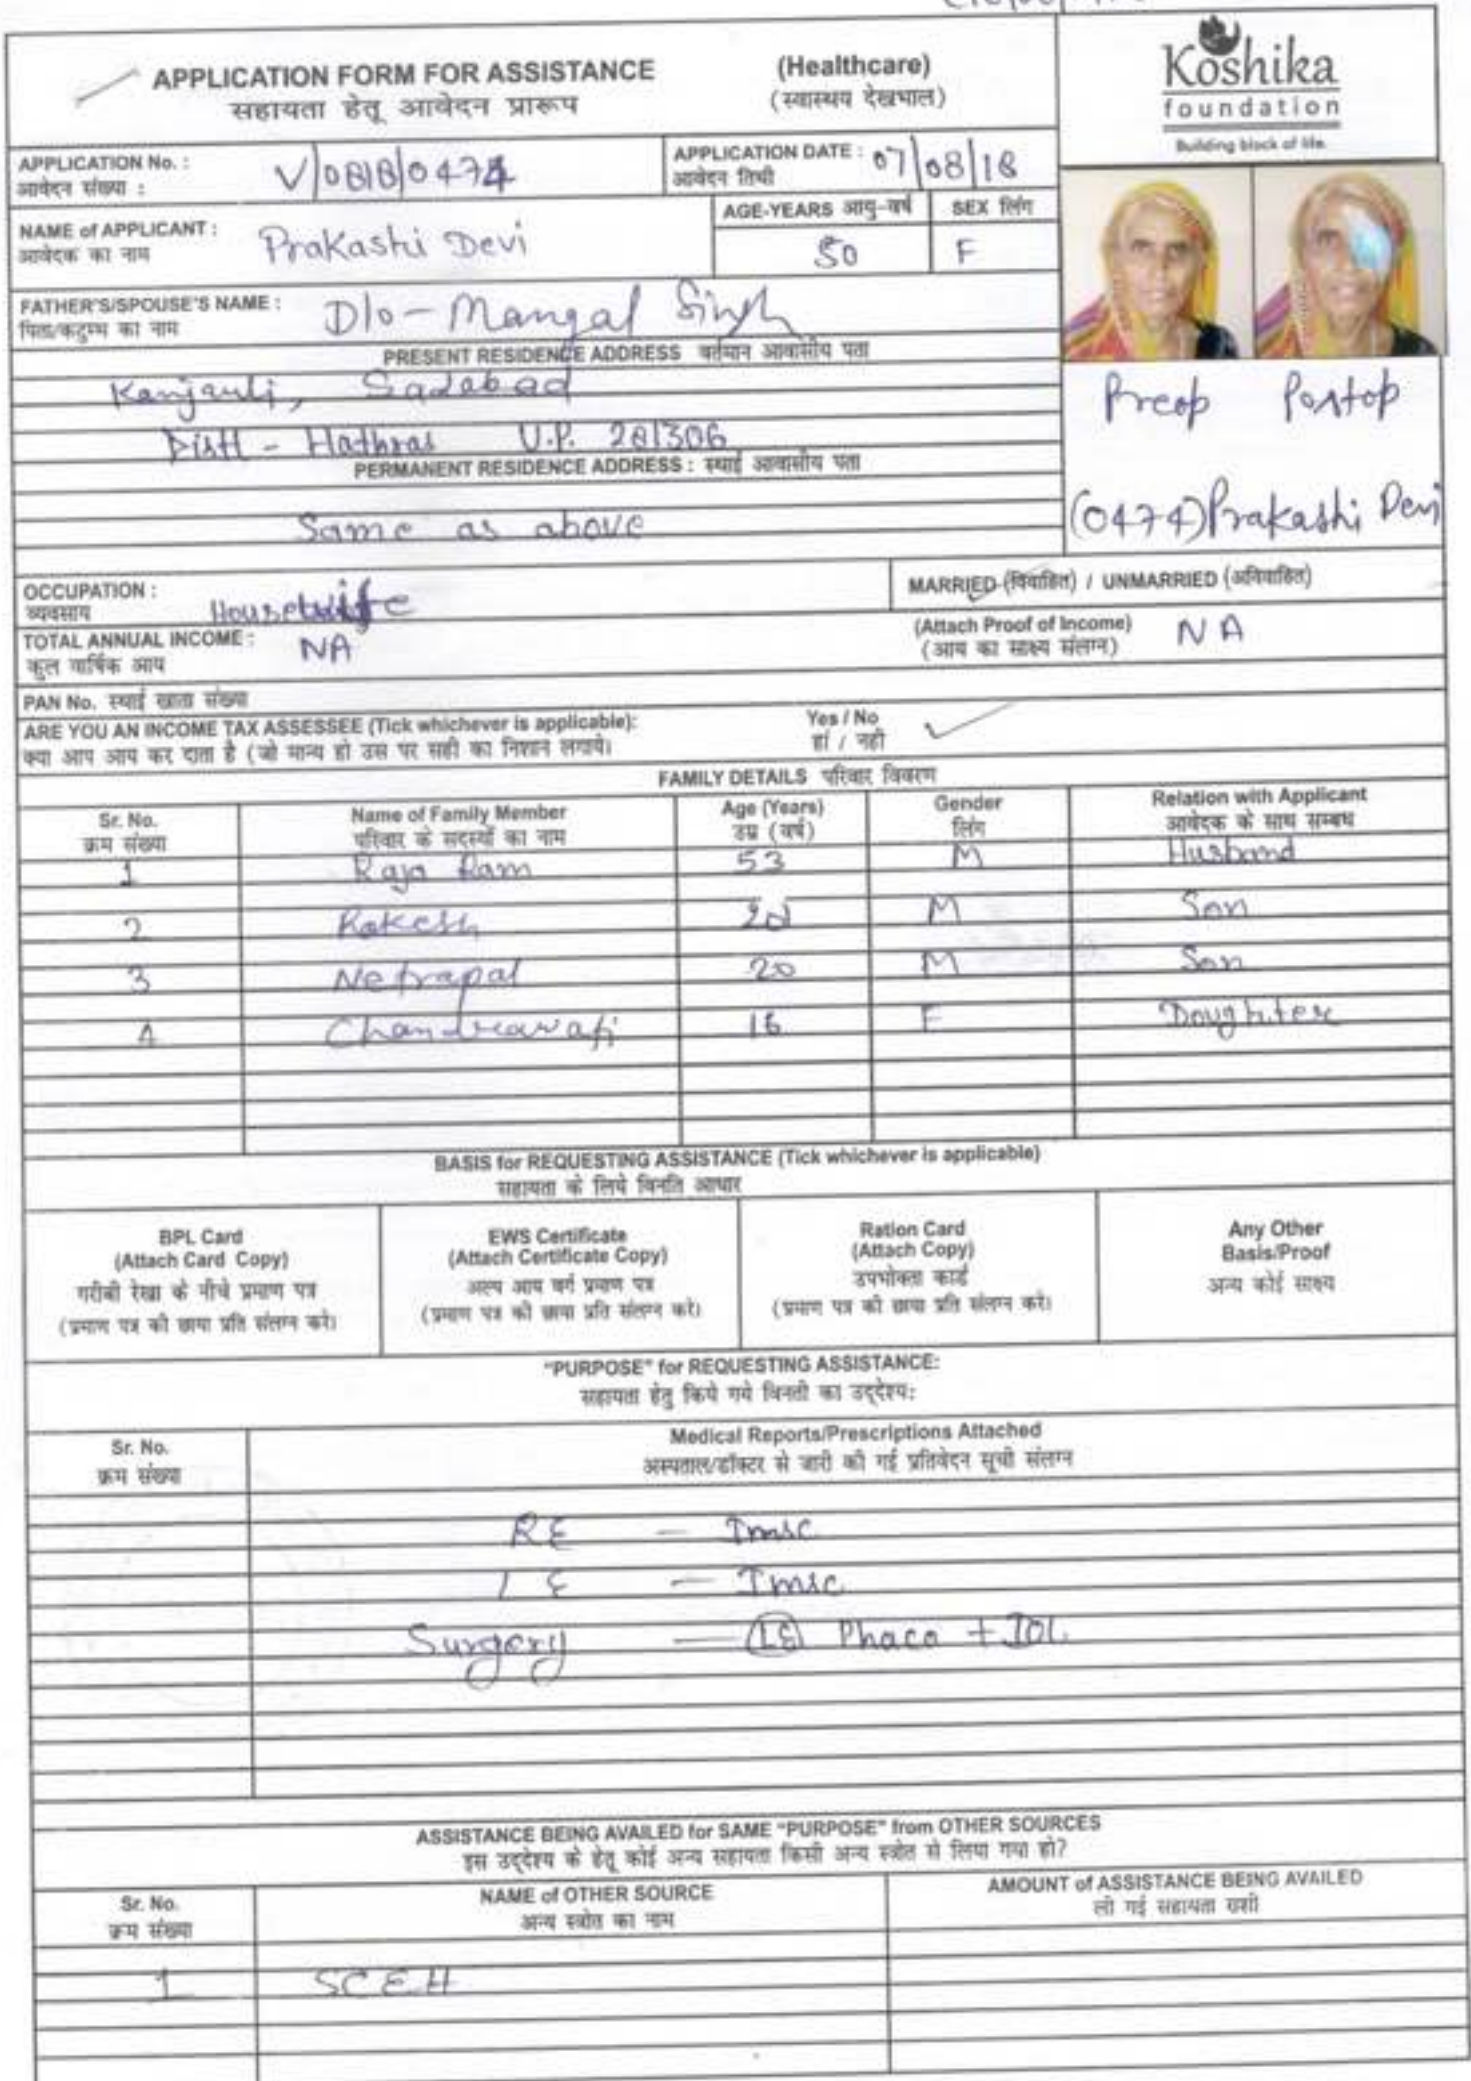 APPLICATION FORM FOR ASSISTANCE (Healthcare)
सहायता हेतू आवेदन प्रारूप (स्वास्थय देखभाल)
Koshika
foundation
Building block of life.
APPLICATION No. : V/0818/0474
आवेदन संख्या :
APPLICATION DATE : 07/08/18
आवेदन तिथी
NAME of APPLICANT : Prakashi Devi
आवेदक का नाम
AGE-YEARS आयु-वर्ष SEX लिंग
50 F
FATHER'S/SPOUSE'S NAME : D/o - Mangal Singh
पिता/कटुम्भ का नाम
PRESENT RESIDENCE ADDRESS वर्तमान आवासीय पता
Kanjauli, Sadabad
Distt - Hathras U.P. 281306
Preop Postop
PERMANENT RESIDENCE ADDRESS : स्थाई आवासीय पता
Same as above
(0474) Prakashi Devi
OCCUPATION : Housewife
व्यवसाय
MARRIED (विवाहित) / UNMARRIED (अविवाहित)
TOTAL ANNUAL INCOME : NA
कुल वार्षिक आय
(Attach Proof of Income) NA
(आय का साक्ष्य संलग्न)
PAN No. स्थाई खाता संख्या
ARE YOU AN INCOME TAX ASSESSEE (Tick whichever is applicable): Yes / No
क्या आप आय कर दाता है (जो मान्य हो उस पर सही का निशान लगाये। हां / नही
FAMILY DETAILS परिवार विवरण
Sr. No. Name of Family Member Age (Years) Gender Relation with Applicant
क्रम संख्या परिवार के सदस्यों का नाम उम्र (वर्ष) लिंग आवेदक के साथ सम्बध
1 Raja Ram 53 M Husband
2 Rakesh M Son
3 Netrapal 20 M Son
4 Chandrawati 16 F Doughter
BASIS for REQUESTING ASSISTANCE (Tick whichever is applicable)
सहायता के लिये विनति आधार
BPL Card
(Attach Card Copy)
गरीबी रेखा के नीचे प्रमाण पत्र
(प्रमाण पत्र की छाया प्रति संलग्न करे।
EWS Certificate
(Attach Certificate Copy)
अल्प आय वर्ग प्रमाण पत्र
(प्रमाण पत्र की छाया प्रति संलग्न करे।
Ration Card
(Attach Copy)
उपभोक्ता कार्ड
(प्रमाण पत्र की छाया प्रति संलग्न करे।
Any Other
Basis/Proof
अन्य कोई साक्ष्य
"PURPOSE" for REQUESTING ASSISTANCE:
सहायता हेतु किये गये विनती का उद्देश्य:
Sr. No. Medical Reports/Prescriptions Attached
क्रम संख्या अस्पताल/डॉक्टर से जारी की गई प्रतिवेदन सूची संलग्न
RE - Imsc
LE - Imsc
Surgery - (LE) Phaco + IOL
ASSISTANCE BEING AVAILED for SAME "PURPOSE" from OTHER SOURCES
इस उद्देश्य के हेतू कोई अन्य सहायता किसी अन्य स्त्रोत से लिया गया हो?
Sr. No. NAME of OTHER SOURCE AMOUNT of ASSISTANCE BEING AVAILED
क्रम संख्या अन्य स्त्रोत का नाम ली गई सहायता राशी
1 SCEH